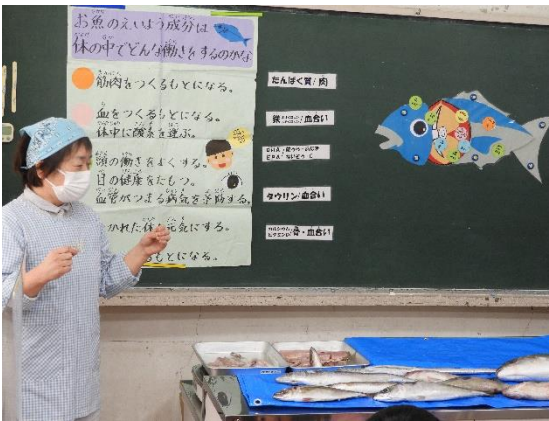 お魚のえいよう成分は
体の中でどんな働きをするのかな
筋肉をつくるもとになる。
血をつくるもとになる。
体中に酸素を運ぶ。
頭の働きをよくする。
目の健康をたもつ。
血管がつまる病気を予防する。
かれた体を元気にする。
もとになる。
たんぱく質/肉
鉄 血合い
DHA
EPA
タウリン/血合い
カルシウム
ビタミンD 骨・血合い